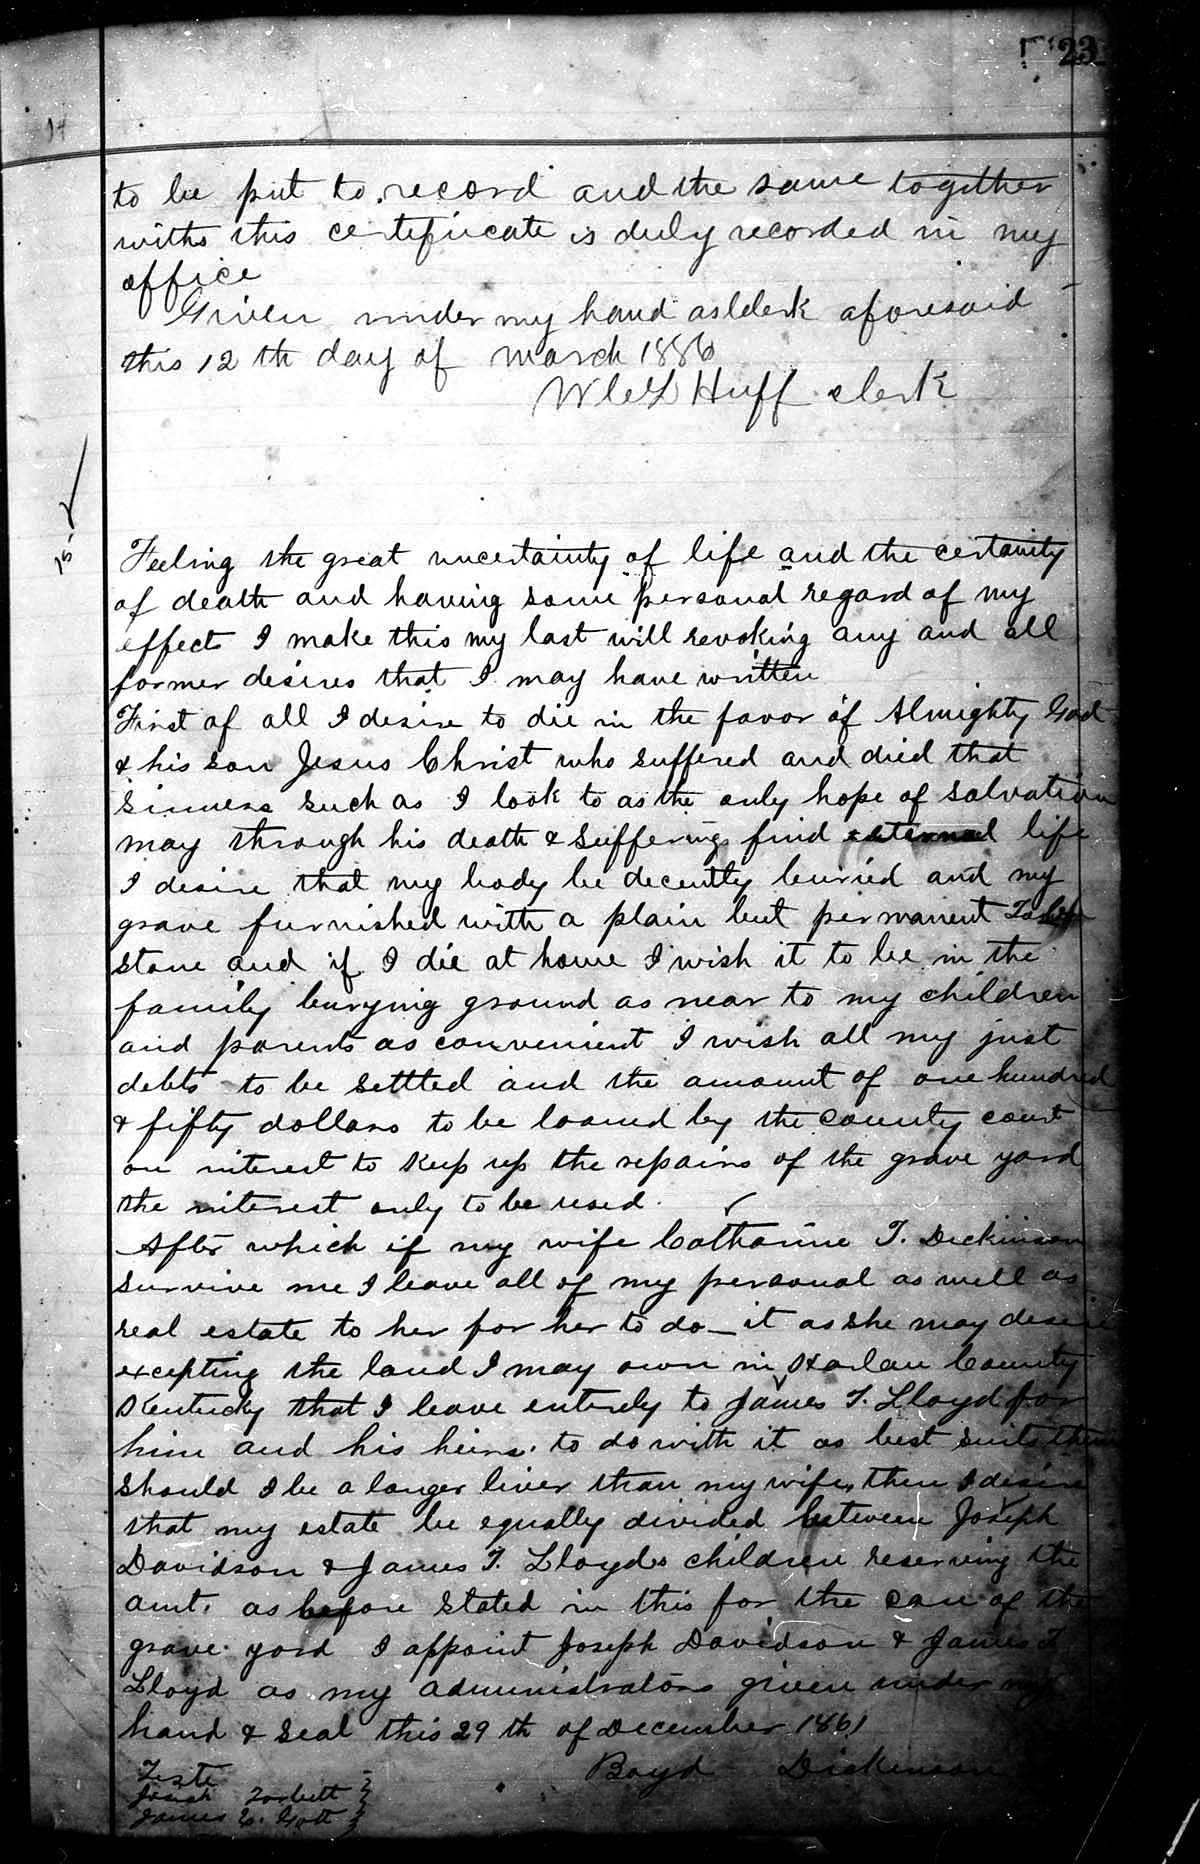 23
14
to be put to record and the same together
with this certificate is duly recorded in my
office
Given under my hand as clerk aforesaid
this 12 th day of march 1886
W C L Huff clerk
Feeling the great uncertainty of life and the certainity
of death and having some personal regard of my
effects I make this my last will revoking any and all
former desires that I may have written
First of all I desire to die in the favor of Almighty God
& his son Jesus Christ who suffered and died that
sinners such as I look to as the only hope of salvation
may through his death & sufferings find eternal life
I desire that my body be decently buried and my
grave furnished with a plain but permanent Tomb
stone and if I die at home I wish it to be in the
family burying ground as near to my children
and parents as convenient I wish all my just
debts to be settled and the amount of one hundred
& fifty dollars to be loaned by the county court
on interest to keep up the repairs of the grave yard
the interest only to be used.
After which if my wife Catharine T. Dickinson
survive me I leave all of my personal as well as
real estate to her for her to do _ it as she may desire
excepting the land I may own in Harlan County
Kentucky that I leave entirely to James T. Lloyd for
him and his heirs. to do with it as best suits them
should I be a longer liver than my wife, then I desire
that my estate be equally divided between Joseph
Davidson & James T. Lloyds children reserving the
amt. as before stated in this for the care of the
grave yard I appoint Joseph Davidson & James T
Lloyd as my administrators given under my
hand & seal this 29 th of December 1861
Boyd Dickinson
Teste
Josiah Torbett
James C. Gott